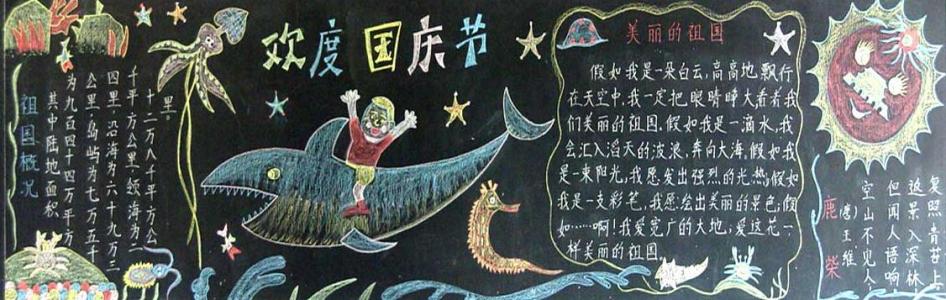 欢度国庆节
祖国概况
其中陆地面积
为九百四十四万平方
公里,岛屿为七万五千
四里,沿海为六十九万三
千平方公里,领海为二
十二万八千平方公
里.
美丽的祖国
假如我是一朵白云,高高地飘行
在天空中,我一定把眼睛睁大看看我
们美丽的祖国.假如我是一滴水,我
会汇入滔天的波浪,奔向大海,假如我
是一束阳光,我愿发出强烈的光热;假如
我是一支彩笔,我愿绘出美丽的景色;假
如……啊!我爱宽广的大地;爱这花一
样美丽的祖国.
鹿柴
(唐)王维
空山不见人
但闻人语响
返景入深林
复照青苔上